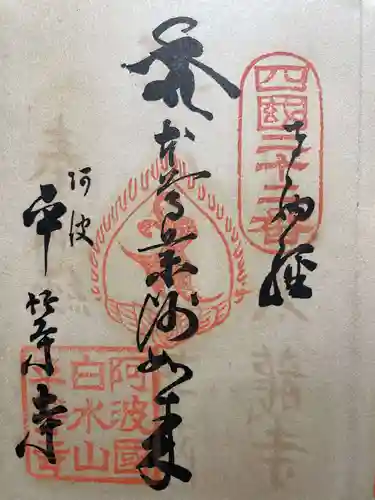 四國二十二番
奉納経
本尊薬師如来
阿波
平等寺
阿波國
白水山
平等寺